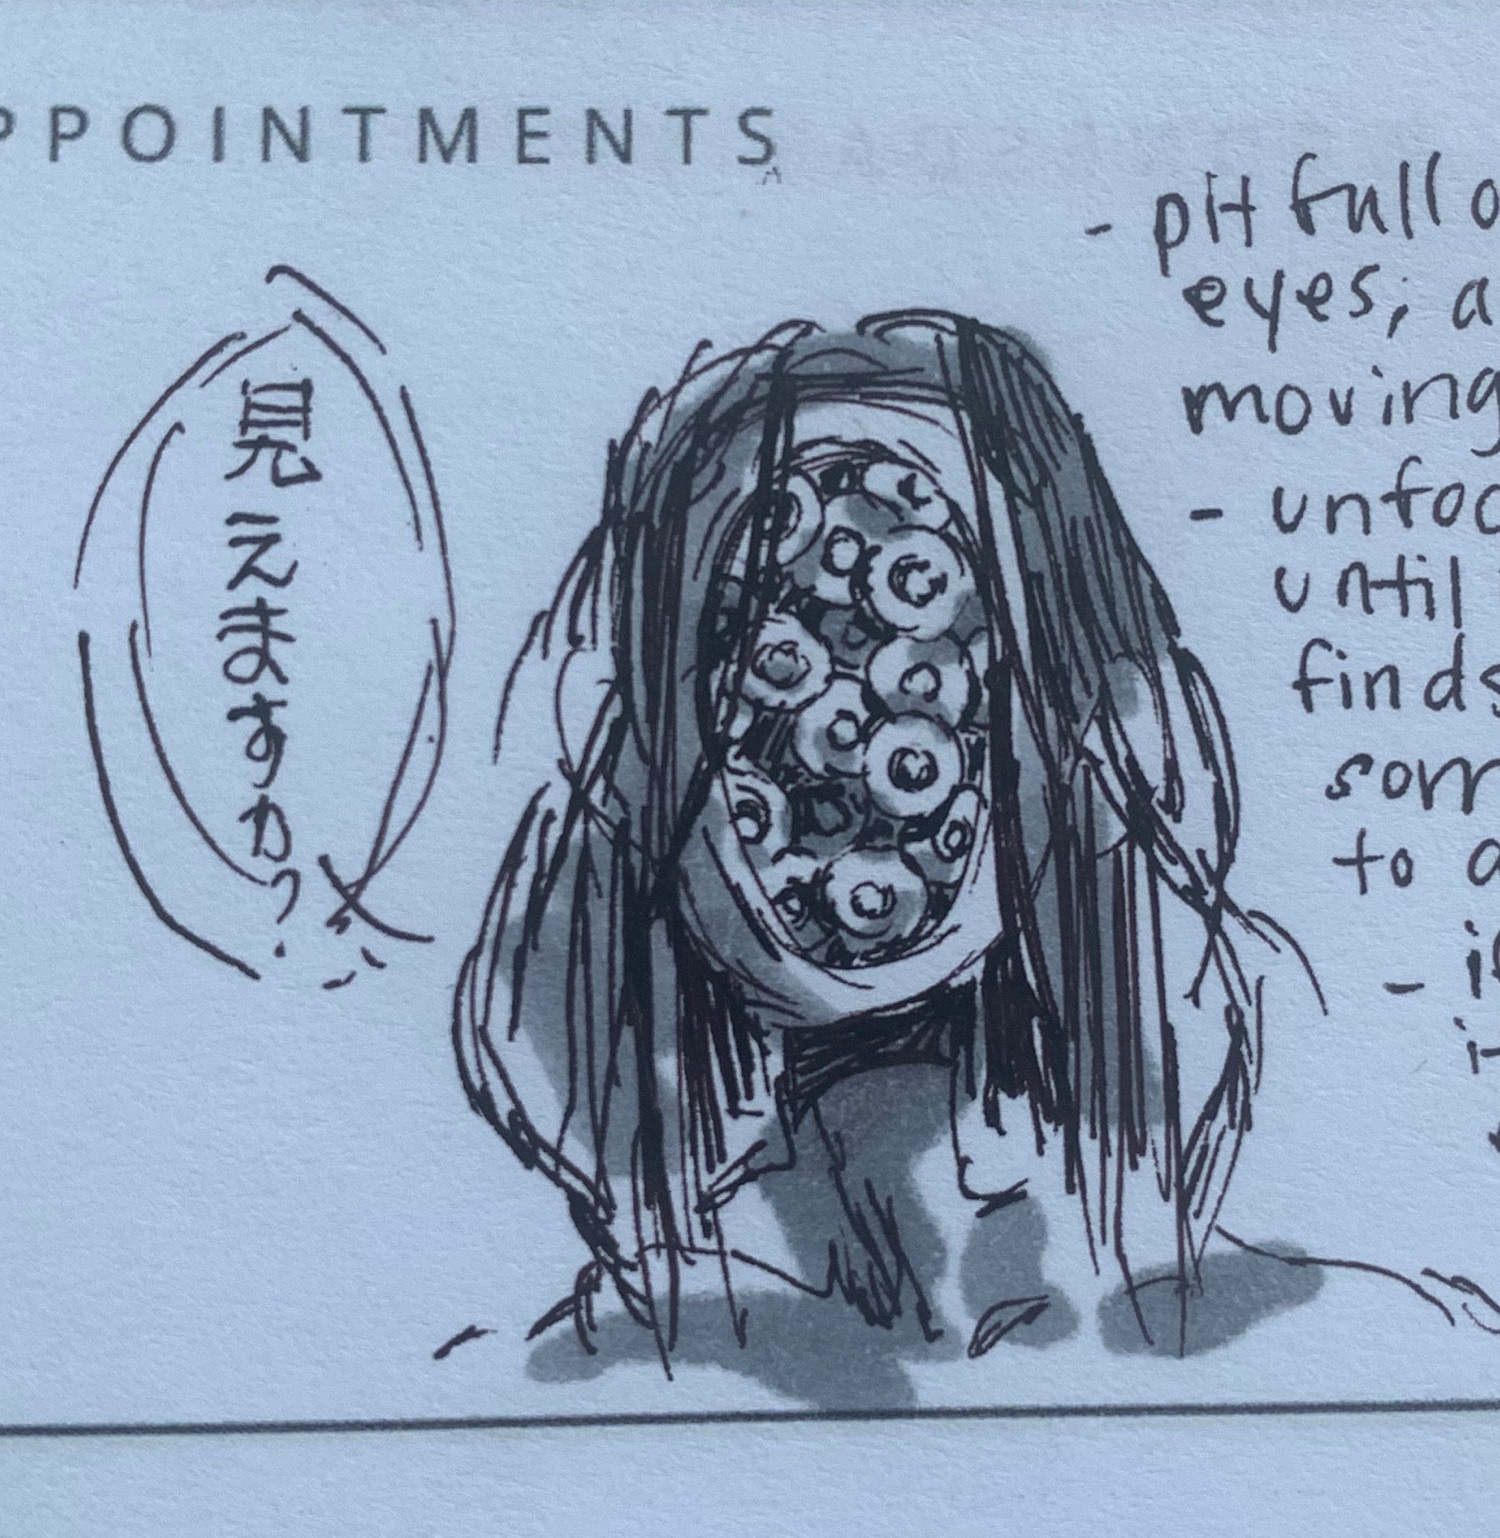 PPOINTMENTS
見えますか?
- pit full o
eyes; a
moving
- unfoc
until
finds
som
to a
- if
it